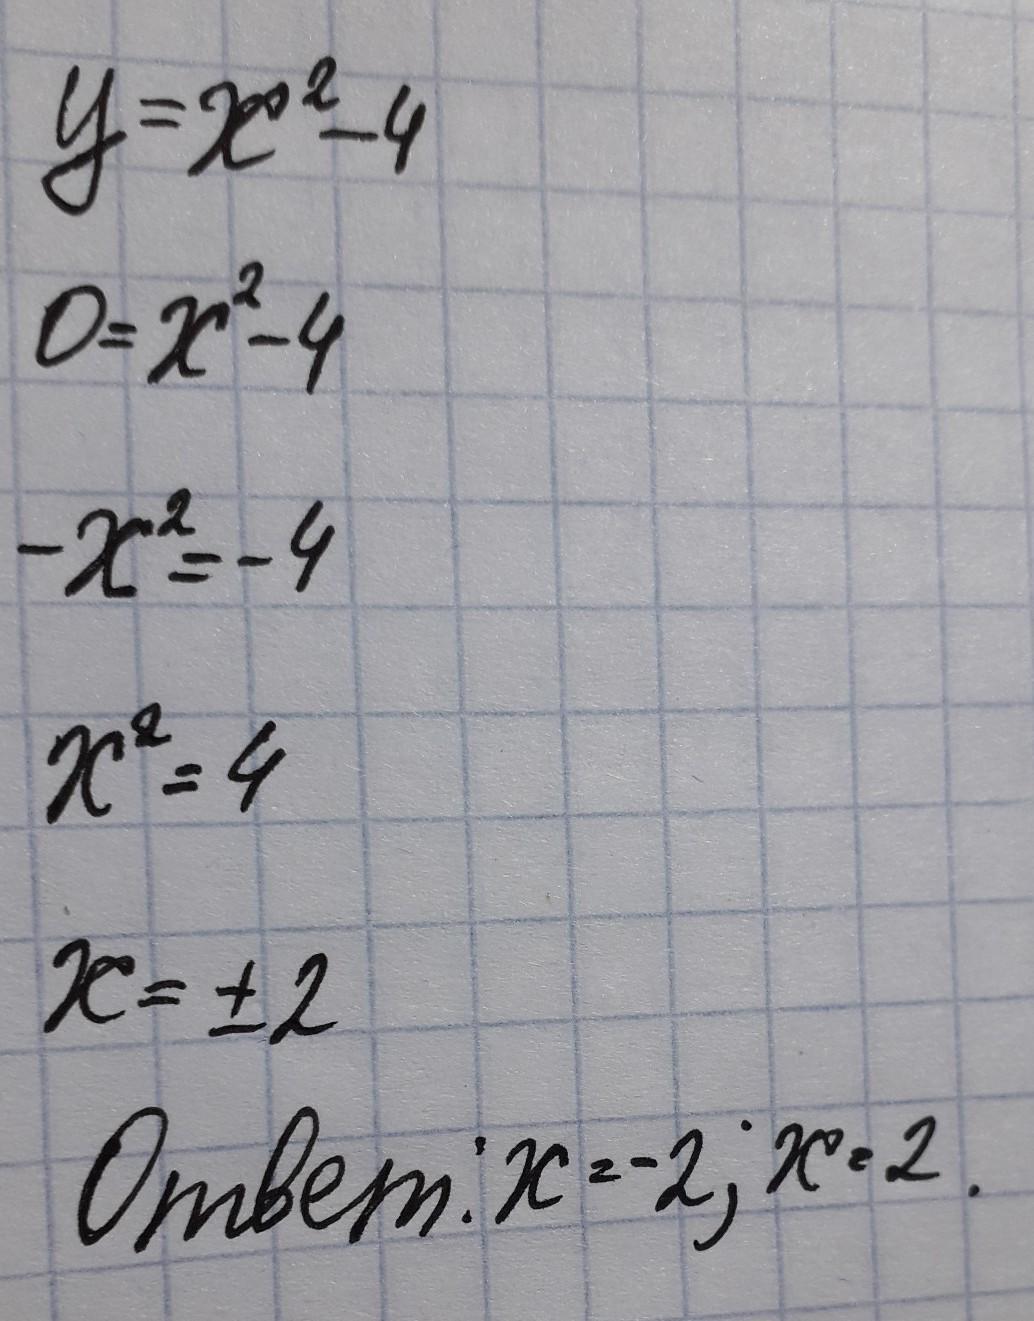 y=x²-4
0=x²-4
-x²=-4
x²=4
x=±2
Ответ: x=-2; x=2.